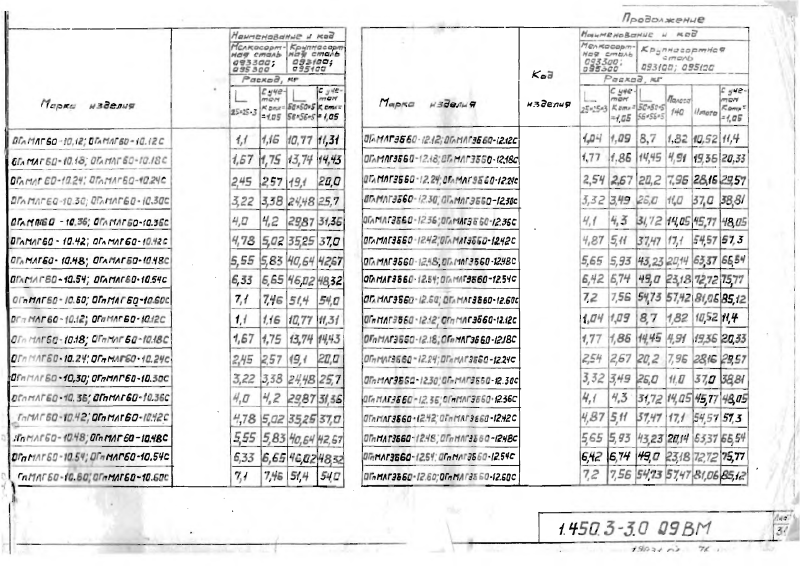 Продолжение
Наименование и код
Мелкосортная сталь 093300; 095300
Крупносортная сталь 093100; 095100
Расход, кг
Марка изделия
25×25×3
С учетом Котх=1,05
50×50×5 56×56×5
С учетом Котх=1,05
ОГлМЛГ60-10.12; ОГлМЛГ60-10.12С 1,1 1,16 10,77 11,31
ОГлМЛГ60-10.18; ОГлМЛГ60-10.18С 1,67 1,75 13,74 14,43
ОГлМЛГ60-10.24; ОГлМЛГ60-10.24С 2,45 2,57 19,1 20,0
ОГлМЛГ60-10.30; ОГлМЛГ60-10.30С 3,22 3,38 24,48 25,7
ОГлМЛГ60-10.36; ОГлМЛГ60-10.36С 4,0 4,2 29,87 31,36
ОГлМЛГ60-10.42; ОГлМЛГ60-10.42С 4,78 5,02 35,25 37,0
ОГлМЛГ60-10.48; ОГлМЛГ60-10.48С 5,55 5,83 40,64 42,67
ОГлМЛГ60-10.54; ОГлМЛГ60-10.54С 6,33 6,65 46,02 48,32
ОГпМЛГ60-10.60; ОГлМЛГ60-10.60С 7,1 7,46 51,4 54,0
ОГпМЛГ60-10.12; ОГпМЛГ60-10.12С 1,1 1,16 10,77 11,31
ОГпМЛГ60-10.18; ОГпМЛГ60-10.18С 1,67 1,75 13,74 14,43
ОГпМЛГ60-10.24; ОГпМЛГ60-10.24С 2,45 2,57 19,1 20,0
ОГпМЛГ60-10.30; ОГпМЛГ60-10.30С 3,22 3,38 24,48 25,7
ОГпМЛГ60-10.36; ОГпМЛГ60-10.36С 4,0 4,2 29,87 31,36
ГпМЛГ60-10.42; ОГпМЛГ60-10.42С 4,78 5,02 35,25 37,0
ГпМЛГ60-10.48; ОГпМЛГ60-10.48С 5,55 5,83 40,64 42,67
ОГпМЛГ60-10.54; ОГпМЛГ60-10.54С 6,33 6,65 46,02 48,32
ГпМЛГ60-10.60; ОГпМЛГ60-10.60С 7,1 7,46 51,4 54,0
Наименование и код
Мелкосортная сталь 093300; 095300
Крупносортная сталь 093100; 095100
Расход, кг
Марка изделия
Код изделия
25×25×3
С учетом Котх=1,05
50×50×5 56×56×5
Полоса 140
Итого
С учетом Котх=1,05
ОГлМЛГЭБ60-12.12; ОГлМЛГЭБ60-12.12С 1,04 1,09 8,7 1,82 10,52 11,4
ОГлМЛГЭБ60-12.18; ОГлМЛГЭБ60-12.18С 1,77 1,86 14,45 4,91 19,36 20,33
ОГлМЛГЭБ60-12.24; ОГлМЛГЭБ60-12.24С 2,54 2,67 20,2 7,96 28,16 29,57
ОГлМЛГЭБ60-12.30; ОГлМЛГЭБ60-12.30С 3,32 3,49 26,0 11,0 37,0 38,81
ОГлМЛГЭБ60-12.36; ОГлМЛГЭБ60-12.36С 4,1 4,3 31,72 14,05 45,77 48,05
ОГлМЛГЭБ60-12.42; ОГлМЛГЭБ60-12.42С 4,87 5,11 37,47 17,1 54,57 57,3
ОГлМЛГЭБ60-12.48; ОГлМЛГЭБ60-12.48С 5,65 5,93 43,23 20,14 63,37 66,54
ОГлМЛГЭБ60-12.54; ОГлМЛГЭБ60-12.54С 6,42 6,74 49,0 23,18 72,72 75,77
ОГлМЛГЭБ60-12.60; ОГлМЛГЭБ60-12.60С 7,2 7,56 54,73 57,42 81,06 85,12
ОГпМЛГЭБ60-12.12; ОГпМЛГЭБ60-12.12С 1,04 1,09 8,7 1,82 10,52 11,4
ОГпМЛГЭБ60-12.18; ОГпМЛГЭБ60-12.18С 1,77 1,86 14,45 4,91 19,36 20,33
ОГпМЛГЭБ60-12.24; ОГпМЛГЭБ60-12.24С 2,54 2,67 20,2 7,96 28,16 29,57
ОГпМЛГЭБ60-12.30; ОГпМЛГЭБ60-12.30С 3,32 3,49 26,0 11,0 37,0 38,81
ОГпМЛГЭБ60-12.36; ОГпМЛГЭБ60-12.36С 4,1 4,3 31,72 14,05 45,77 48,05
ОГпМЛГЭБ60-12.42; ОГпМЛГЭБ60-12.42С 4,87 5,11 37,47 17,1 54,57 57,3
ОГпМЛГЭБ60-12.48; ОГпМЛГЭБ60-12.48С 5,65 5,93 43,23 20,14 63,37 66,54
ОГпМЛГЭБ60-12.54; ОГпМЛГЭБ60-12.54С 6,42 6,74 49,0 23,18 72,72 75,77
ОГпМЛГЭБ60-12.60; ОГпМЛГЭБ60-12.60С 7,2 7,56 54,73 57,47 81,06 85,12
1.450.3-3.0 09ВМ
Лист
31